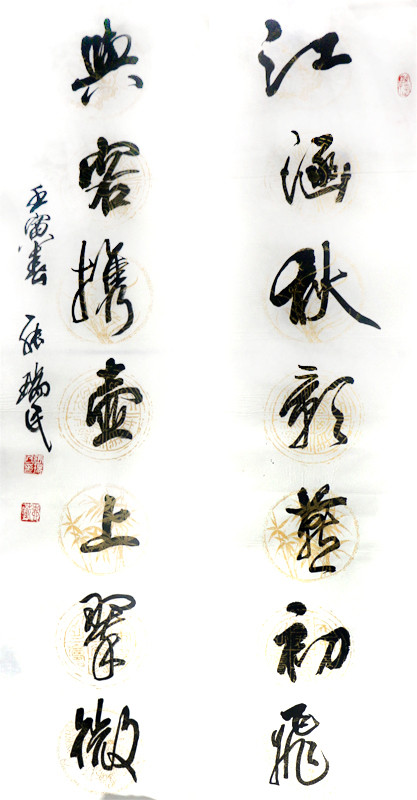 江涵秋影雁初飛
與客携壺上翠微
壬寅春 張瑞民